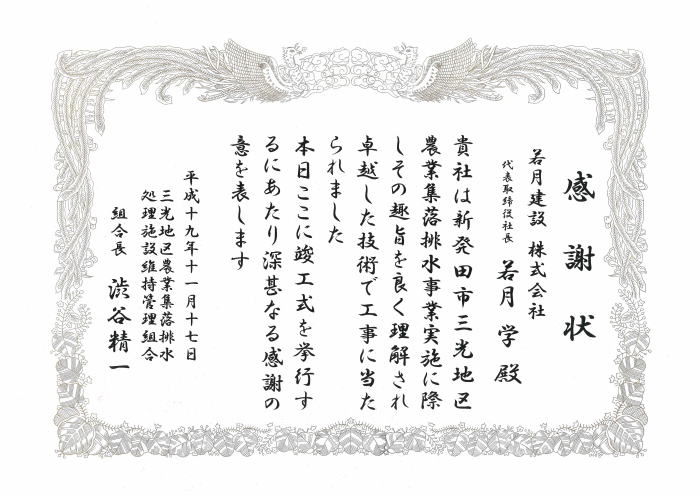 感謝状
若月建設 株式会社
代表取締役社長 若月 学 殿
貴社は新発田市三光地区
農業集落排水事業実施に際
しその趣旨を良く理解され
卓越した技術で工事に当た
られました
本日ここに竣工式を挙行す
るにあたり深甚なる感謝の
意を表します
平成十九年十一月十七日
三光地区農業集落排水
処理施設維持管理組合
組合長 渋谷精一